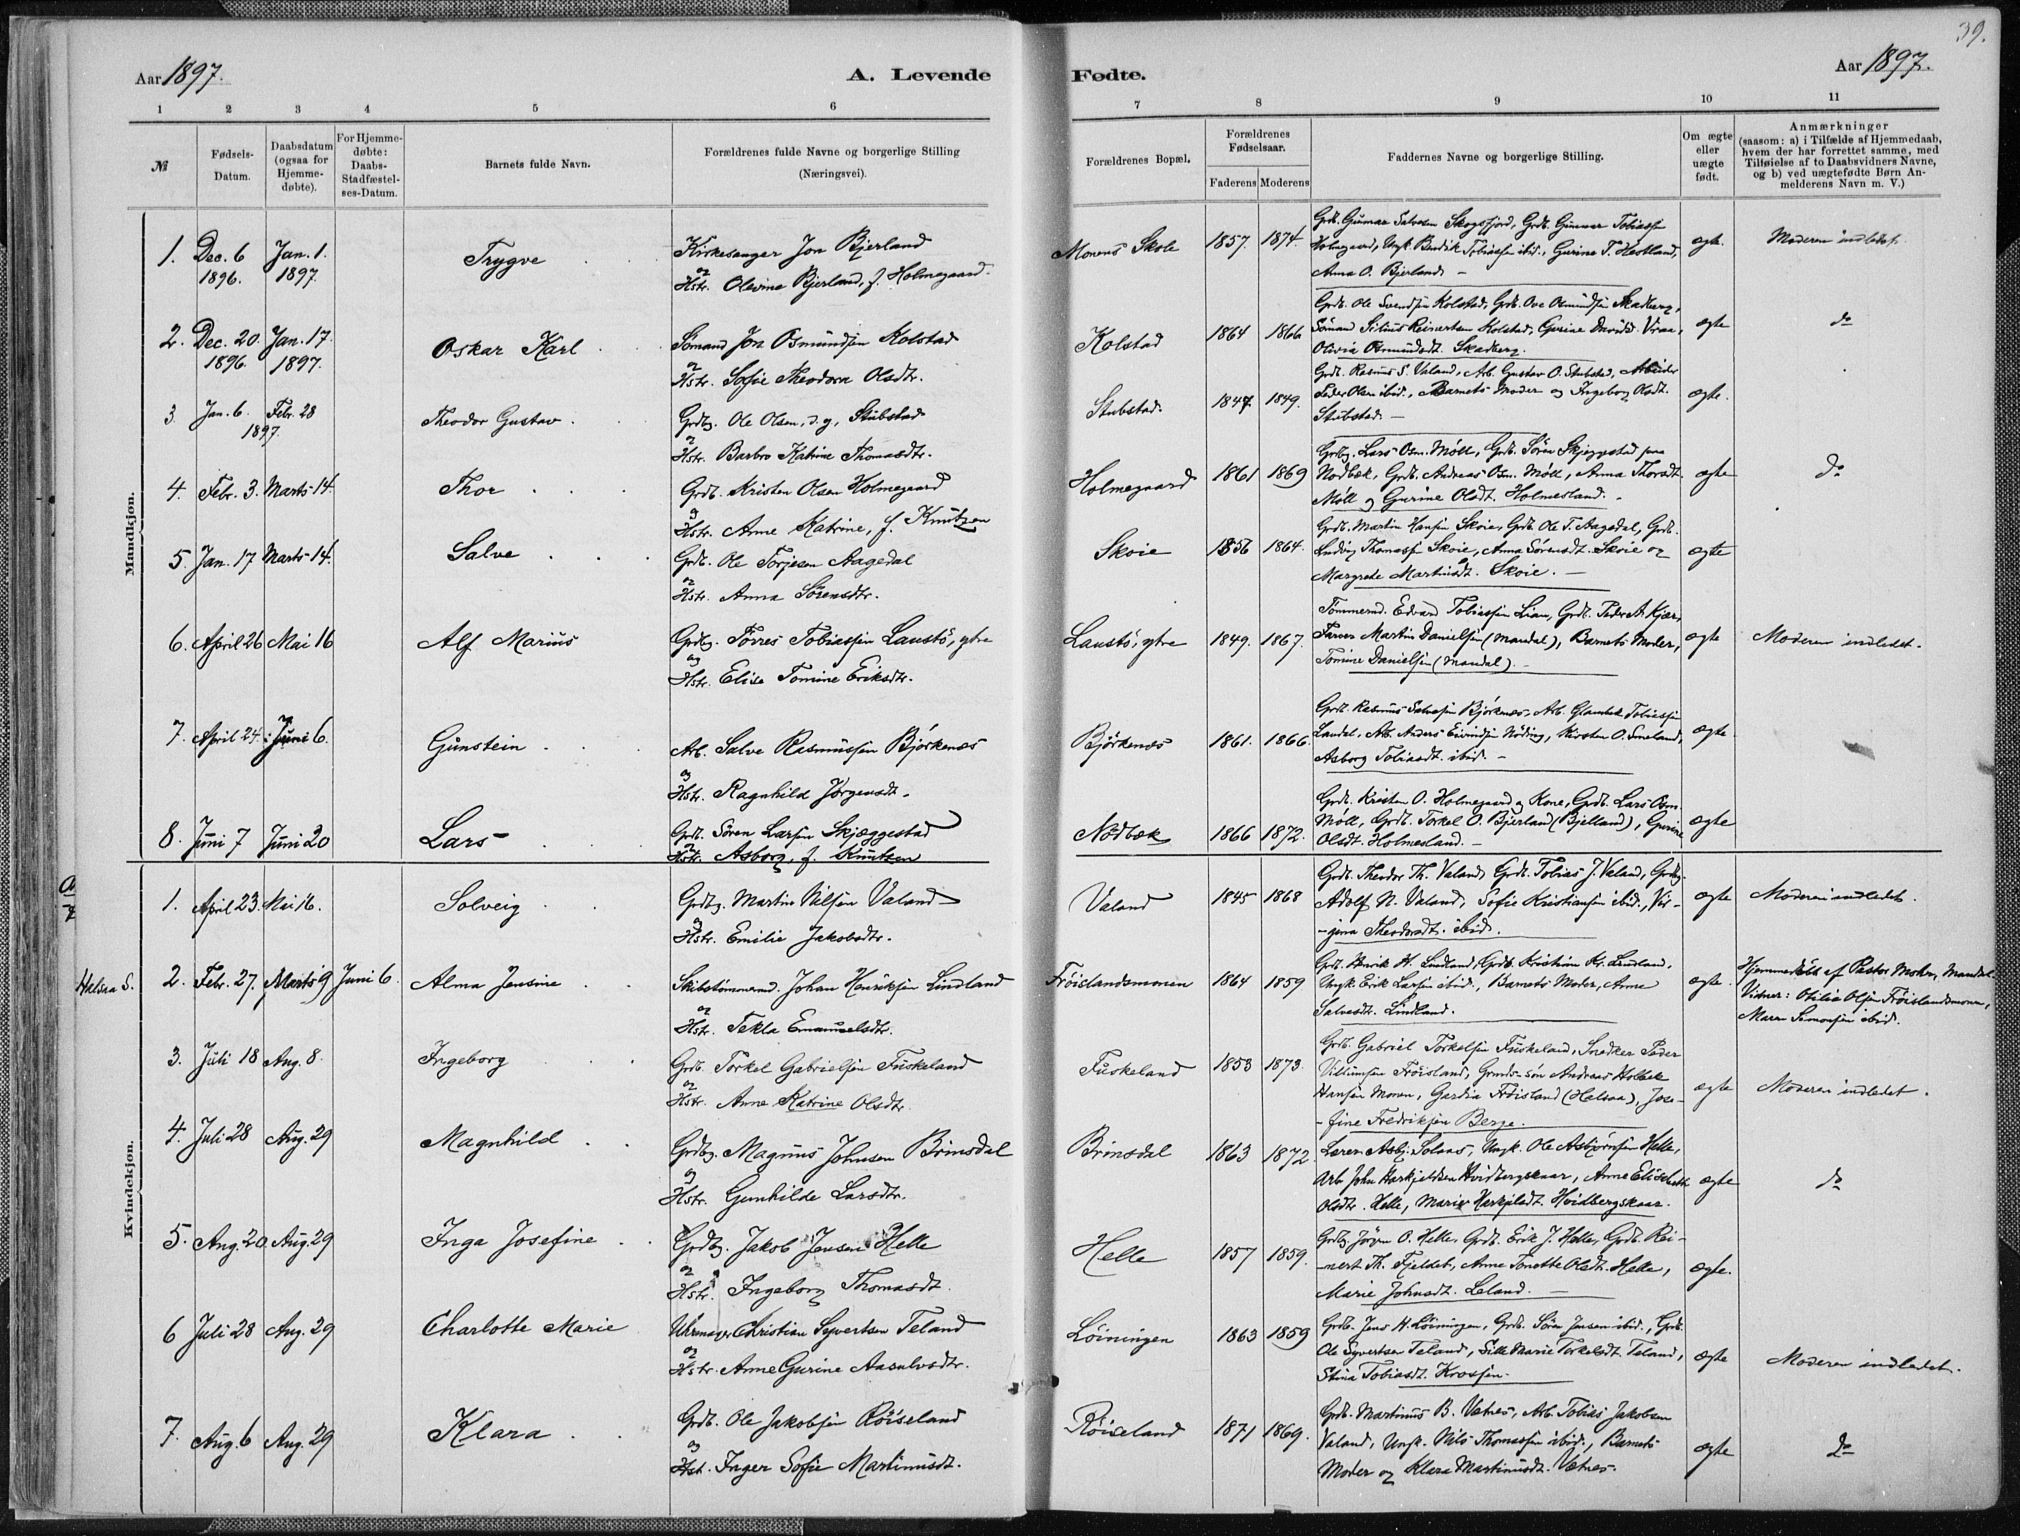 39.
Aar 1897.
A. Levende
Fødte.
Aar 1897.
1 2 3 4 5 6 7 8 9 10 11
№
Fødsels-
Datum.
Daabsdatum
(ogsaa for
Hjemme-
døbte).
For Hjemme-
døbte:
Daabs-
Stadfæstel-
ses-Datum.
Barnets fulde Navn.
Forældrenes fulde Navne og borgerlige Stilling
(Næringsvei).
Forældrenes Bopæl.
Forældrenes
Fødselsaar.
Faderens Moderens
Faddernes Navne og borgerlige Stilling.
Om ægte
eller
uægte
født.
Anmærkninger
(saasom: a) i Tilfælde af Hjemmedaab,
hvem der har forrettet samme, med
Tilføielse af to Daabsvidners Navne,
og b) ved uægtefødte Børn An-
melderens Navn m. V.)
Mandkjøn.
1. Dec. 6 1896. Jan. 1. 1897. Trygve
Kirkesanger Jon Bjerland
og Hstr. Olevine Bjerland, f. Holmegaard.
Monens Skole 1857. 1874.
Grdb. Gunnar Salvesen Skogsfjord, Grdb. Gunnar Tobiassen
Holmegaard, Ungk. Bendik Tobiassen ibid., Gurine T. Hestland,
Anna O. Bjerland —
ægte. Moderen indledet.
2. Dec. 20. 1896. Jan. 17. 1897. Oskar Karl
Sømand Jon Osmundsen Kolstad
og Hstr. Sofie Theodora Olsdtr.
Kolstad 1864 1866
Grdb. Ole Svendsen Kolstad, Grdb. Ove Osmundsen Skadberg,
Sømand Silius Reinertsen Kolstad, Gurine Davidsd. Viraa,
Olivia Osmundsdt. Skadberg.
ægte do
3. Jan. 6. 1897. Febr. 28 Theodor Gustav
Grdbg. Ole Olsen, d. y., Stubstad
og Hstr. Barbro Katrine Thomasdtr.
Stubstad. 1847 1849.
Grdb. Rasmus S. Valand, Arb. Gustav O. Stubstad, Arbeider
Peder Olsen ibid., Barnets Moder og Ingeborg Olsdt.
Stubstad. —
ægte.
4. Febr. 3. Marts 14. Thor
Grdb. Kristen Olsen Holmegaard
og Hstr. Anne Katrine, f. Knutzen
Holmegaard 1861 1869
Grdbg. Lars Osm. Møll, Grdb. Søren Skjeggestad paa
Nødbæk, Grdb. Andreas Osm. Møll, Anna Thorsdt.
Møll og Gurine Olsdt. Holmesland. -
ægte do
5. Jan. 17 Marts 14. Salve
Grdb. Ole Torjesen Aagedal
og Hstr. Anna Sørensdtr.
Skoie 1856 1864.
Grdb. Martin Hansen Skoie, Grdb. Ole T. Aagedal, Grdb.
Ludvig Thomass. Skoie, Anna Sørensdt. Skoie og
Margrete Martinsdt. Skoie. —
ægte
6. April 26 Mai 16 Alf Marius
Grdbg. Tørres Tobiassen Laustø, ytre
og Hstr. Elise Tomine Eriksdtr.
Laustø, ytre 1849. 1867.
Tømmermd. Edvard Tobiassen Lian, Grdb. Peder A. Kjær,
Farver Martin Danielsen (Mandal), Barnets Moder,
Tomine Danielsen (Mandal). -
ægte Moderen indledet.
7. April 24. Juni 6. Gunstein
Arb. Salve Rasmussen Bjørkenæs
og Hstr. Ragnhild Jørgensdt.
Bjørkenæs 1861. 1866.
Grdb. Rasmus Salvesen Bjørkenæs, Arb. Glambek Tobiassen
Laudal, Arb. Anders Eivindsen Nøding, Kirsten O. Smeland,
Asborg Tobiasdt. ibid. —
ægte
8. Juni 7 Juni 20 Lars
Grdb. Søren Larsen Skjæggestad
og Hstr. Asborg, f. Knutzen
Nødbæk 1866 1872.
Grdb. Kristen O. Holmegaard og Kone, Grdb. Lars Osm.
Møll, Grdb. Torkel O. Bjerland (Bjelland), Gurine
Olsdt. Holmesland. —
ægte
Kvindekjøn.
1. April 23. Mai 16. Solveig
Grdbg. Martin Nilsen Valand
og Hstr. Emilie Jakobsdtr.
Valand 1845 1868
Grdb. Theodor Th. Valand, Grdb. Tobias J. Valand, Grdbg.
Adolf N. Valand, Sofie Kristiansen ibid., Vir-
-gina Theodorsdt. ibid.
ægte Moderen indledet.
Halsaa S.
2. Febr. 27. Marts 9 Juni 6. Alma Jensine
Skibstømmermd. Johan Henriksen Lindland
og Hstr. Tekla Emanuelsdtr.
Frøislandsmonen 1864 1859
Grdb. Henrik H. Lindland, Grdb. Kristian Kr. Lindland,
Ungk. Erik Larsen ibid., Barnets Moder, Anne
Salvesdt. Lindland.
ægte.
Hjemmedøbt af Pastor Mohn, Mandal.
Vidner: Otilie Olsen Frøislandsmonen,
Maren Simonsen ibid.
3. Juli 18 Aug. 8. Ingeborg
Grdb. Torkel Gabrielsen Fuskeland
og Hstr. Anne Katrine Olsdtr.
Fuskeland 1853 1873.
Grdb. Gabriel Torkelsen Fuskeland, Snedker Peder
Villumsen Frøisland, Grundsøn Andreas Holbek
Hansen Monen, Gardia Frøisland (Halsaa), Jose-
-fine Fredriksen Berge.
ægte Moderen indledet.
4. Juli 28 Aug. 29 Magnhild
Grdbg. Magnus Johnsen Brinsdal
og Hstr. Gunhilde Larsdtr.
Brinsdal 1863 1872
Lærer Asbj. Solaas, Ungk. Ole Asbjørnsen Helle,
Arb. John Herkjeldsen Hvidbergskaar, Anne Elisabeth
Olsdtr. Helle, Marie Herkjelsdt. Hvidbergskaar.
ægte do
5. Aug. 20 Aug. 29 Inga Josefine
Grdbg. Jakob Jensen Helle
og Hstr. Ingeborg Thomasdt.
Helle 1857 1859.
Grdbg. Jørgen O. Helle, Grdb. Erik J. Helle, Grdb. Rei-
-nert Th. Fjeldet, Anne Tonette Olsdt. Helle,
Marie Johnsdt. Leland. —
ægte.
6 Juli 28 Aug. 29 Charlotte Marie
Uhrmager Christian Syvertsen Teland
og Hstr. Anne Gurine Aasulvsdtr.
Løiningen 1863 1859
Grdb. Jens H. Løiningen, Grdb. Søren Jensen ibid., Grdb.
Ole Syvertsen Teland, Sille Marie Torkelsdt. Teland,
Stina Tobiasdt. Krossen.
ægte Moderen indledet.
7. Aug. 6 Aug. 29 Klara
Grdb. Ole Jakobsen Røiseland
og Hst. Inger Sofie Martinusdt.
Røiseland 1871 1869.
Grdb. Martinus B. Vatnes, Arb. Tobias Jakobsen
Valand, Ungk. Nils Thomassen ibid., Barnets
Moder og Klara Martinusdt. Vatnes.
ægte do